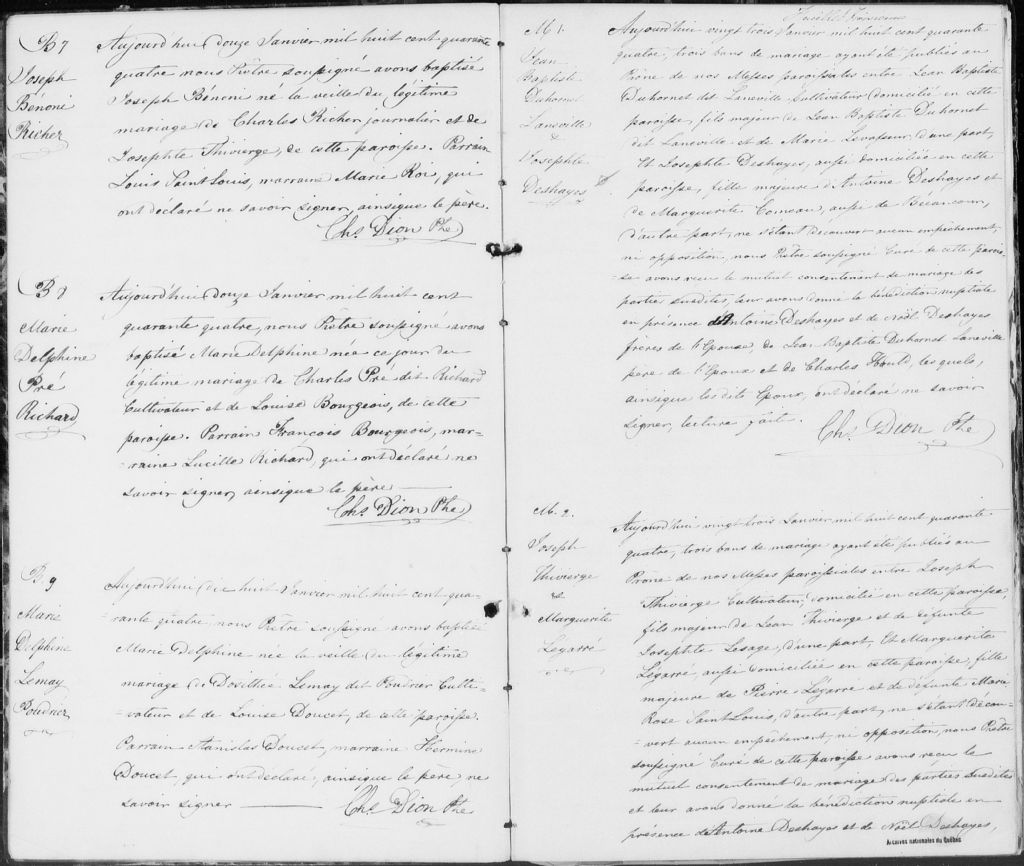 B 7
Joseph
Bénoni
Richer
Aujourd'hui douze Janvier mil huit cent quarante
quatre nous Prêtre soussigné avons baptisé
Joseph Bénoni né la veille du légitime
mariage de Charles Richer journalier et de
Josephte Thivierge, de cette paroisse. Parrain
Louis Saint Louis, marraine Marie Roi, qui
ont déclaré ne savoir signer, ainsique le père.
Chs. Dion Ptre
B 8
Marie
Delphine
Pré
Richard
Aujourd'hui douze Janvier mil huit cent
quarante quatre, nous Prêtre soussigné avons
baptisé Marie Delphine née ce jour du
légitime mariage de Charles Pré dit Richard
Cultivateur et de Louise Bourgeois, de cette
paroisse. Parrain François Bourgeois, mar-
-raine Lucille Richard, qui ont déclaré ne
savoir signer, ainsique le père
Chs. Dion Ptre
B. 9
Marie
Delphine
Lemay
Poudrier
Aujourd'hui dix huit Janvier mil huit cent qua-
-rante quatre nous Prêtre soussigné avons baptisé
Marie Delphine née la veille du légitime
mariage de Dosithée Lemay dit Poudrier Culti-
-vateur et de Louise Doucet, de cette paroisse.
Parrain Stanislas Doucet, marraine Hermine
Doucet, qui ont déclaré, ainsique le père ne
savoir signer
Chs. Dion Ptre
M 1.
Jean
Baptiste
Duhornet
Laneville
&
Josephte
Deshayes
Aujourd'hui vingt trois Janvier mil huit cent quarante
quatre, trois bans de mariage ayant été publiés au
Prône de nos Messes paroissiales entre Jean Baptiste
Duhornet dit Laneville Cultivateur domicilié en cette
paroisse, fils majeur de Jean Baptiste Duhornet
dit Laneville et de Marie Levasseur d'une part,
Et Josephte Deshayes, aussi domiciliée en cette
paroisse, fille majeure d'Antoine Deshayes et
de Marguerite Comeau, aussi de Bécancour,
d'autre part, ne s'étant découvert aucun empêchement,
ni opposition, nous Prêtre soussigné Curé de cette parois-
se avons reçu le mutuel consentement de mariage des
parties susdites, leur avons donné la bénédiction nuptiale
en présence d'Antoine Deshayes et de Noël Deshayes
frères de l'Epouse, de Jean Baptiste Duhornet Laneville
père de l'Epoux et de Charles Hould, lesquels,
ainsique les dits Epoux, ont déclaré ne savoir
signer, lecture faite.
Chs. Dion Ptre
M. 2.
Joseph
Thivierge
et
Marguerite
Légarré
Aujourd'hui vingt trois Janvier mil huit cent quarante
quatre, trois bans de mariage ayant été publiés au
Prône de nos Messes paroissiales entre Joseph
Thivierge Cultivateur, domicilié en cette paroisse,
fils majeur de Jean Thivierge et de défunte
Josephte Lesage, d'une part, Et Marguerite
Légarré, aussi domiciliée en cette paroisse, fille
majeure de Pierre Légarre et de défunte Marie
Rose Saint Louis, d'autre part, ne s'étant décou-
-vert aucun empêchement, ni opposition, nous Prêtre
soussigné Curé de cette paroisse avons reçu le
mutuel consentement de mariage des parties susdites
et leur avons donné la bénédiction nuptiale en
présence d'Antoine Deshayes et de Noël Deshayes,
Archives nationales du Québec